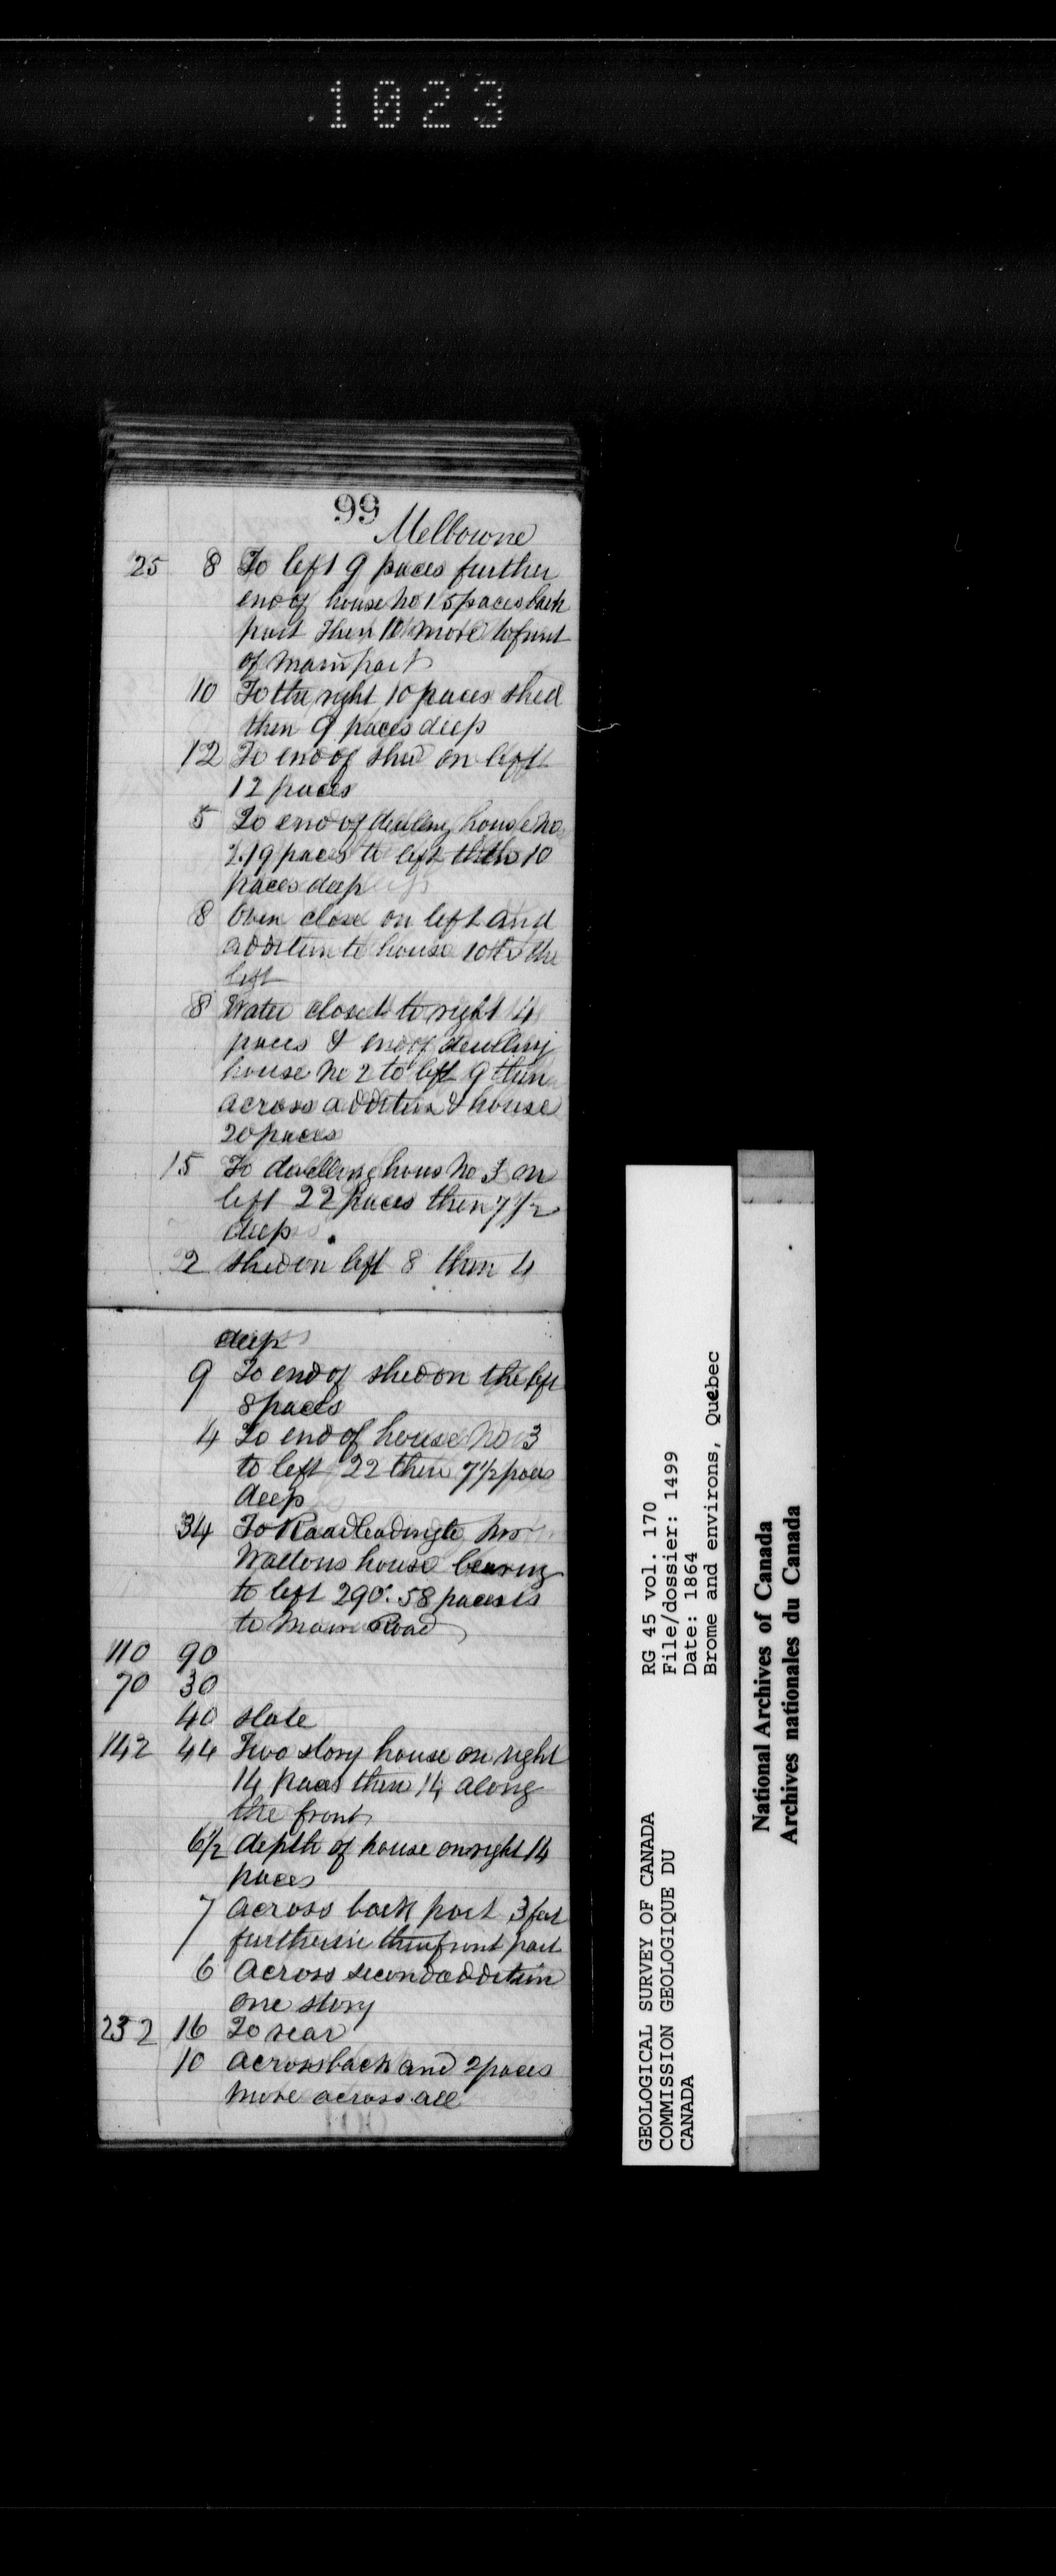 1023
99
Melbourne
25 8 To left 9 paces further
end of house No 1 5 paces back
part then 10 more to front
of main part
10 To the right 10 paces shed
then 9 paces deep
12 To end of shed on left
12 paces
5 To end of dwelling house No
2. 19 paces to left then 10
paces deep
8 Oven close on left and
addition to house 10 to the
left
8 Water closet to right 4
paces & end of dwelling
house No 2 to left 9 then
across addition & house
20 paces
15 To dwelling hous No 3 on
left 22 paces then 7 1/2
deep
2 shed on left 8 then 4
deep
9 To end of shed on the left
8 paces
4 To end of house No 3
to left 22 then 7 1/2 paces
deep
34 To Road leading to Mrs
Waltons house bearing
to left 290°. 58 paces is
to Main Road
110 90
70 30
40 slate
142 44 Two story house on right
14 paces then 14 along
the front
6 1/2 depth of house on right 14
paces
7 across back part 3 feet
further in than front part
6 Across second addition
one story
232 16 To rear
10 across back and 2 paces
more across all
100
GEOLOGICAL SURVEY OF CANADA
COMMISSION GEOLOGIQUE DU
CANADA
RG 45 vol. 170
File/dossier: 1499
Date: 1864
Brome and environs, Quebec
National Archives of Canada
Archives nationales du Canada